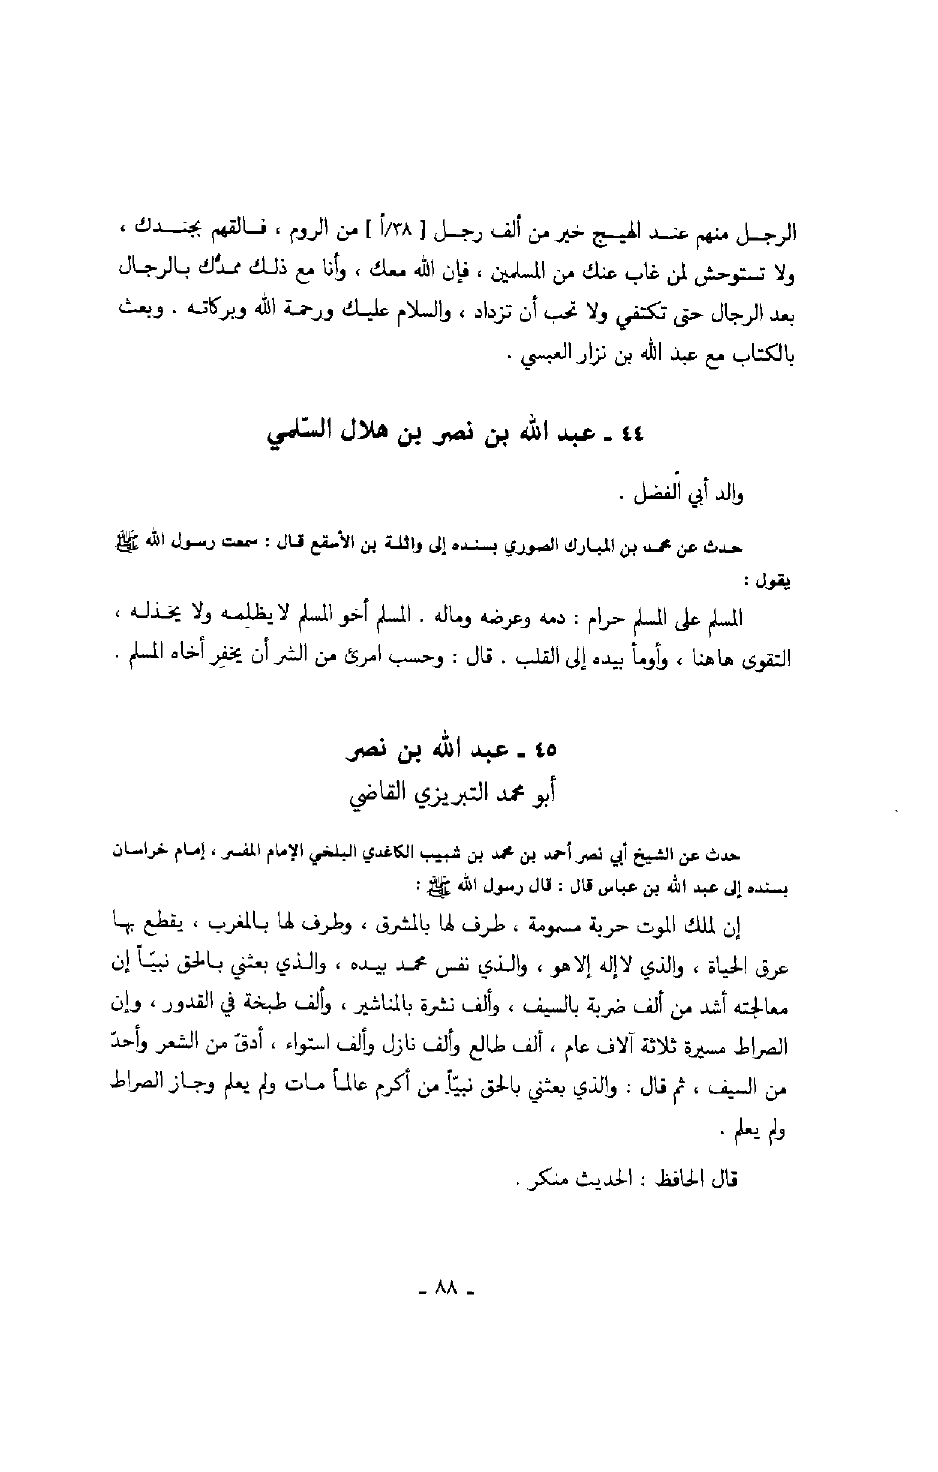 الرجل منهم عند الهيج خير من ألف رجل [ ٣٨/أ ] من الروم ، فالقهم بجندك ،
ولا تستوحش لمن غاب عنك من المسلمين ، فإن الله معك ، وأنا مع ذلك ممدّك بالرجال
بعد الرجال حتى تكتفي ولا تحب أن تزداد ، والسلام عليك ورحمة الله وبركاته . وبعث
بالكتاب مع عبد الله بن نزار العبسي .
٤٤ ـ عبد الله بن نصر بن هلال السّلمي
والد أبي الفضل .
حدث عن محمد بن المبارك الصوري بسنده إلى واثلة بن الأسقع قال : سمعت رسول الله ﷺ
يقول :
المسلم على المسلم حرام : دمه وعرضه وماله . المسلم أخو المسلم لا يظلمه ولا يخذله ،
التقوى هاهنا ، وأومأ بيده إلى القلب . قال : وحسب امرئ من الشر أن يخفر أخاه المسلم .
٤٥ ـ عبد الله بن نصر
أبو محمد التبريزي القاضي
حدث عن الشيخ أبي نصر أحمد بن محمد بن شبيب الكاغدي البلخي الإمام المفسر ، إمام خراسان
بسنده إلى عبد الله بن عباس قال : قال رسول الله ﷺ :
إن لملك الموت حربة مسمومة ، طرف لها بالمشرق ، وطرف لها بالمغرب ، يقطع بها
عرق الحياة ، والذي لا إله إلا هو ، والذي نفس محمد بيده ، والذي بعثني بالحق نبيّاً إن
معالجته أشد من ألف ضربة بالسيف ، وألف نشرة بالمناشير ، وألف طبخة في القدور ، وإن
الصراط مسيرة ثلاثة آلاف عام ، ألف طالع وألف نازل وألف استواء ، أدقّ من الشعر وأحدّ
من السيف ، ثم قال : والذي بعثني بالحق نبيّاً من أكرم عالماً مات ولم يعلم وجاز الصراط
ولم يعلم .
قال الحافظ : الحديث منكر .
ـ ٨٨ ـ